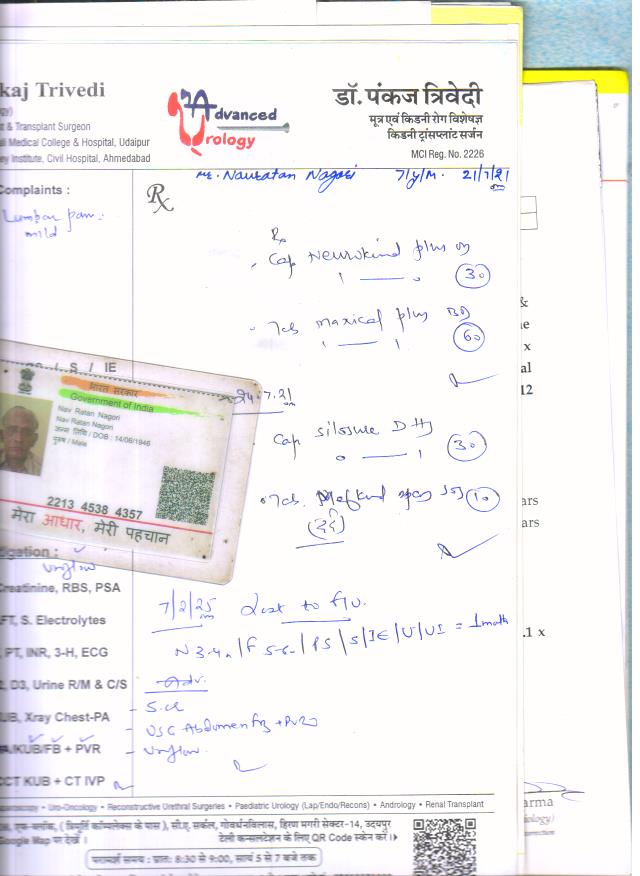 kaj Trivedi
t & Transplant Surgeon
li Medical College & Hospital, Udaipur
ey Institute, Civil Hospital, Ahmedabad
Advanced
Urology
डॉ. पंकज त्रिवेदी
मूत्र एवं किडनी रोग विशेषज्ञ
किडनी ट्रांसप्लांट सर्जन
MCI Reg. No. 2226
Mr. Navratan Nagori 21/7/21
Complaints :
Lumbar pain
mild
Rx
Rx
Cap Neurokind plus
30
Tab Maxical plus BD
60
7.21
Cap Silosure D
30
Tab. Mefkind spas
10
(दर्द)
/ S / IE
भारत सरकार
Government of India
Nav Ratan Nagori
Nav Ratan Nagori
जन्म तिथि / DOB : 14/06/1946
पुरुष / Male
2213 4538 4357
मेरा आधार, मेरी पहचान
igation :
Uroflow
Creatinine, RBS, PSA
FT, S. Electrolytes
PT, INR, 3-H, ECG
D3, Urine R/M & C/S
UB, Xray Chest-PA
KUB/FB + PVR
CCT KUB + CT IVP
7/2/25 Lost to f/u.
N 3-4 / F 5-6 / PS / S / IE / U / UI = 1 month
Adv.
- S. cr
- USG Abdomen FB + PVR
- Uroflow
• Uro-Oncology • Reconstructive Urethral Surgeries • Paediatric Urology (Lap/Endo/Recons) • Andrology • Renal Transplant
( त्रिमूर्ति कॉम्पलेक्स के पास ), सी.ए. सर्कल, गोवर्धनविलास, हिरण मगरी सेक्टर-14, उदयपुर
Google Map पर देखें ।
टेली कन्सलटेशन के लिए QR Code स्केन करें।
परामर्श समय : प्रातः 8:30 से 9:00, सायं 5 से 7 बजे तक
&
le
x
al
12
ars
ars
.1 x
arma
iology)